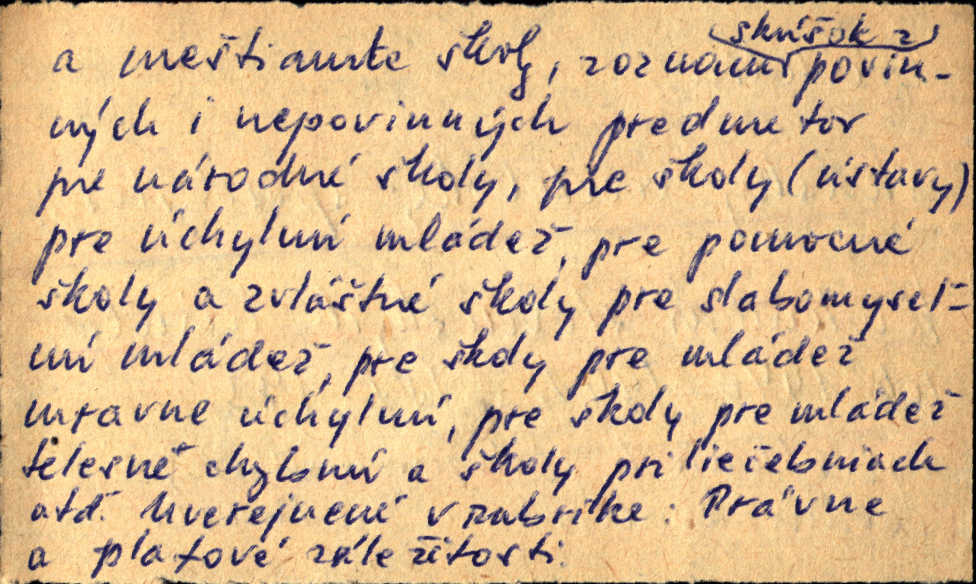 skúšok z
a meštianske školy, zoznam povin-
ných i nepovinných predmetov
pre národné školy, pre školy (ústavy)
pre úchylnú mládež, pre pomocné
školy a zvláštné školy pre slabomysel-
nú mládež, pre školy pre mládež
mravne úchylnú, pre školy pre mládež
telesně chybnú a školy pri liečebniach
atď. Uverejnené v rubrike: Právne
a platové záležitosti.